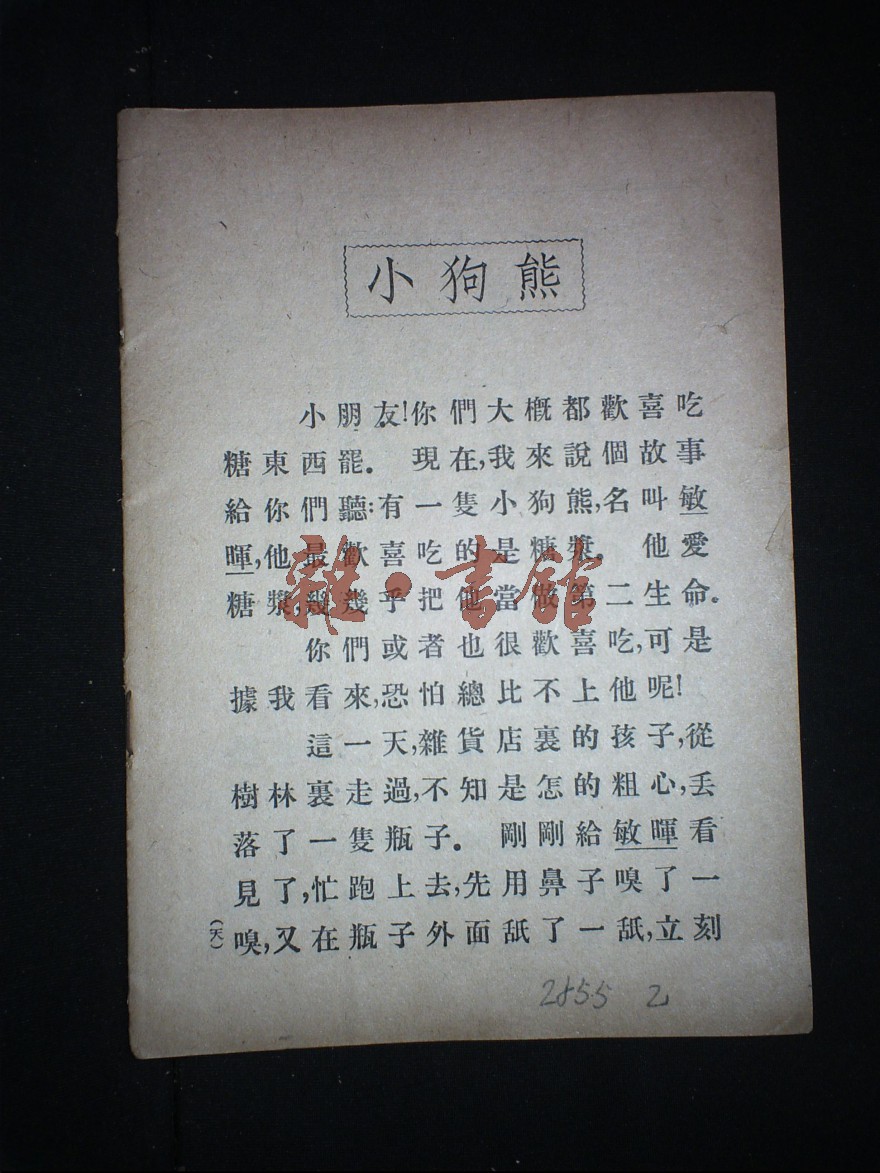 小狗熊
小朋友!你們大概都歡喜吃
糖東西罷。 現在,我來說個故事
給你們聽:有一隻小狗熊,名叫敏
暉,他最歡喜吃的是糖漿。 他愛
糖漿,幾幾乎把他當做第二生命。
你們或者也很歡喜吃,可是
據我看來,恐怕總比不上他呢!
這一天,雜貨店裏的孩子,從
樹林裏走過,不知是怎的粗心,丟
落了一隻瓶子。 剛剛給敏暉看
見了,忙跑上去,先用鼻子嗅了一
嗅,又在瓶子外面舐了一舐,立刻
(天)
2855 2
雜·書館